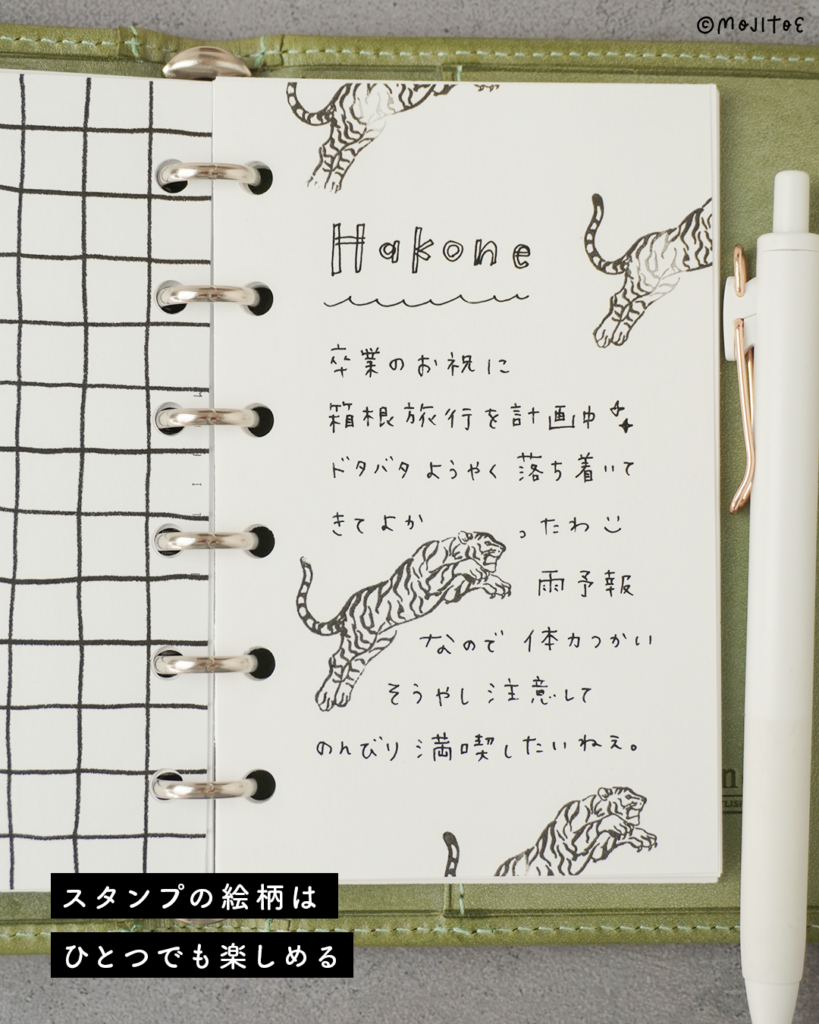 ©MOJITOE
Hakone
卒業のお祝に
箱根旅行を計画中
ドタバタようやく落ち着いて
きてよか ったわ
雨予報
なので 体力つかい
そうやし注意して
のんびり満喫したいねぇ。
スタンプの絵柄は
ひとつでも楽しめる